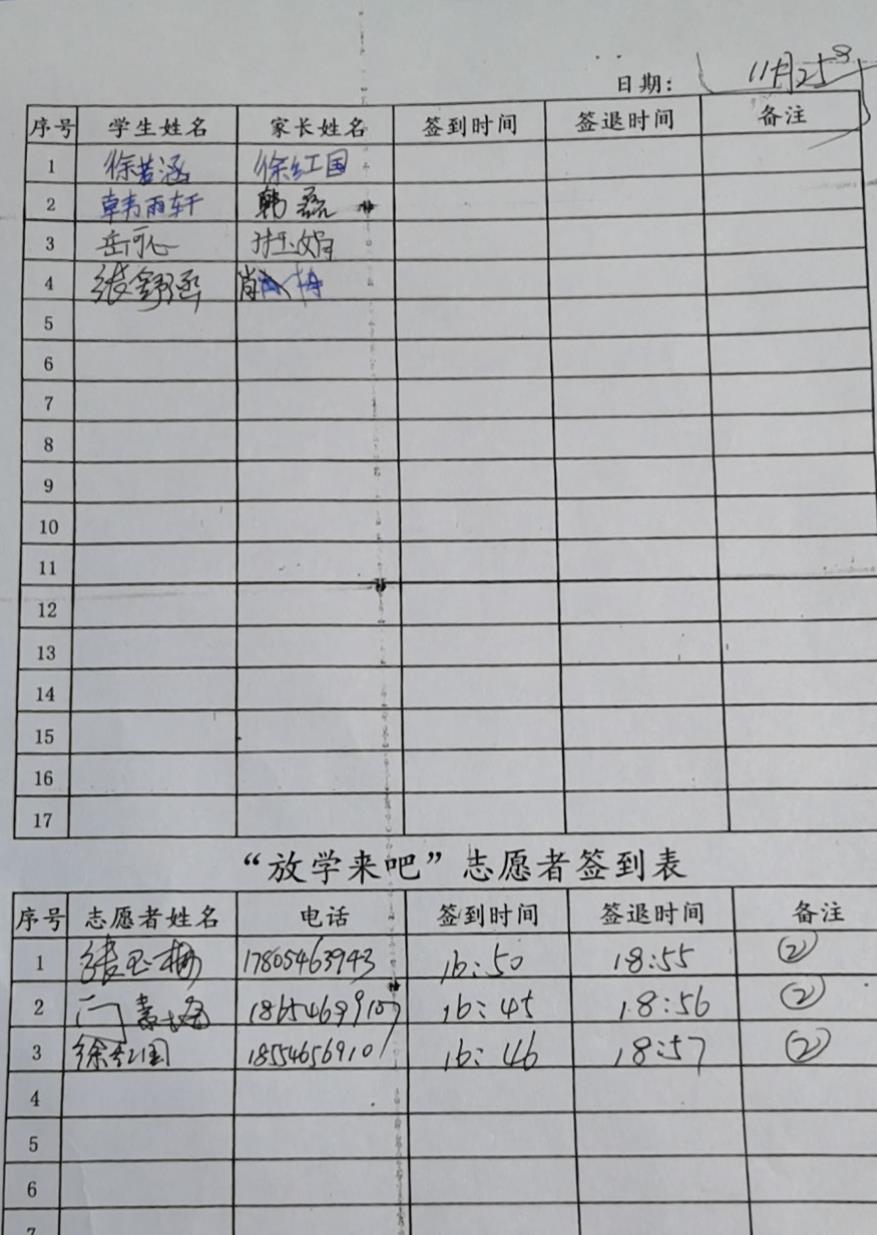 日期: 11月25日
序号 学生姓名 家长姓名 签到时间 签退时间 备注
1 徐若涵 徐红国
2 韩雨轩 韩磊
3 岳可心
4 张舒涵 肖
5
6
7
8
9
10
11
12
13
14
15
16
17
“放学来吧”志愿者签到表
序号 志愿者姓名 电话 签到时间 签退时间 备注
1 张玉梅 17805463943 16:50 18:55 ②
2 16:45 18:56 ②
3 徐红国 18554656910 16:46 18:57 ②
4
5
6
7